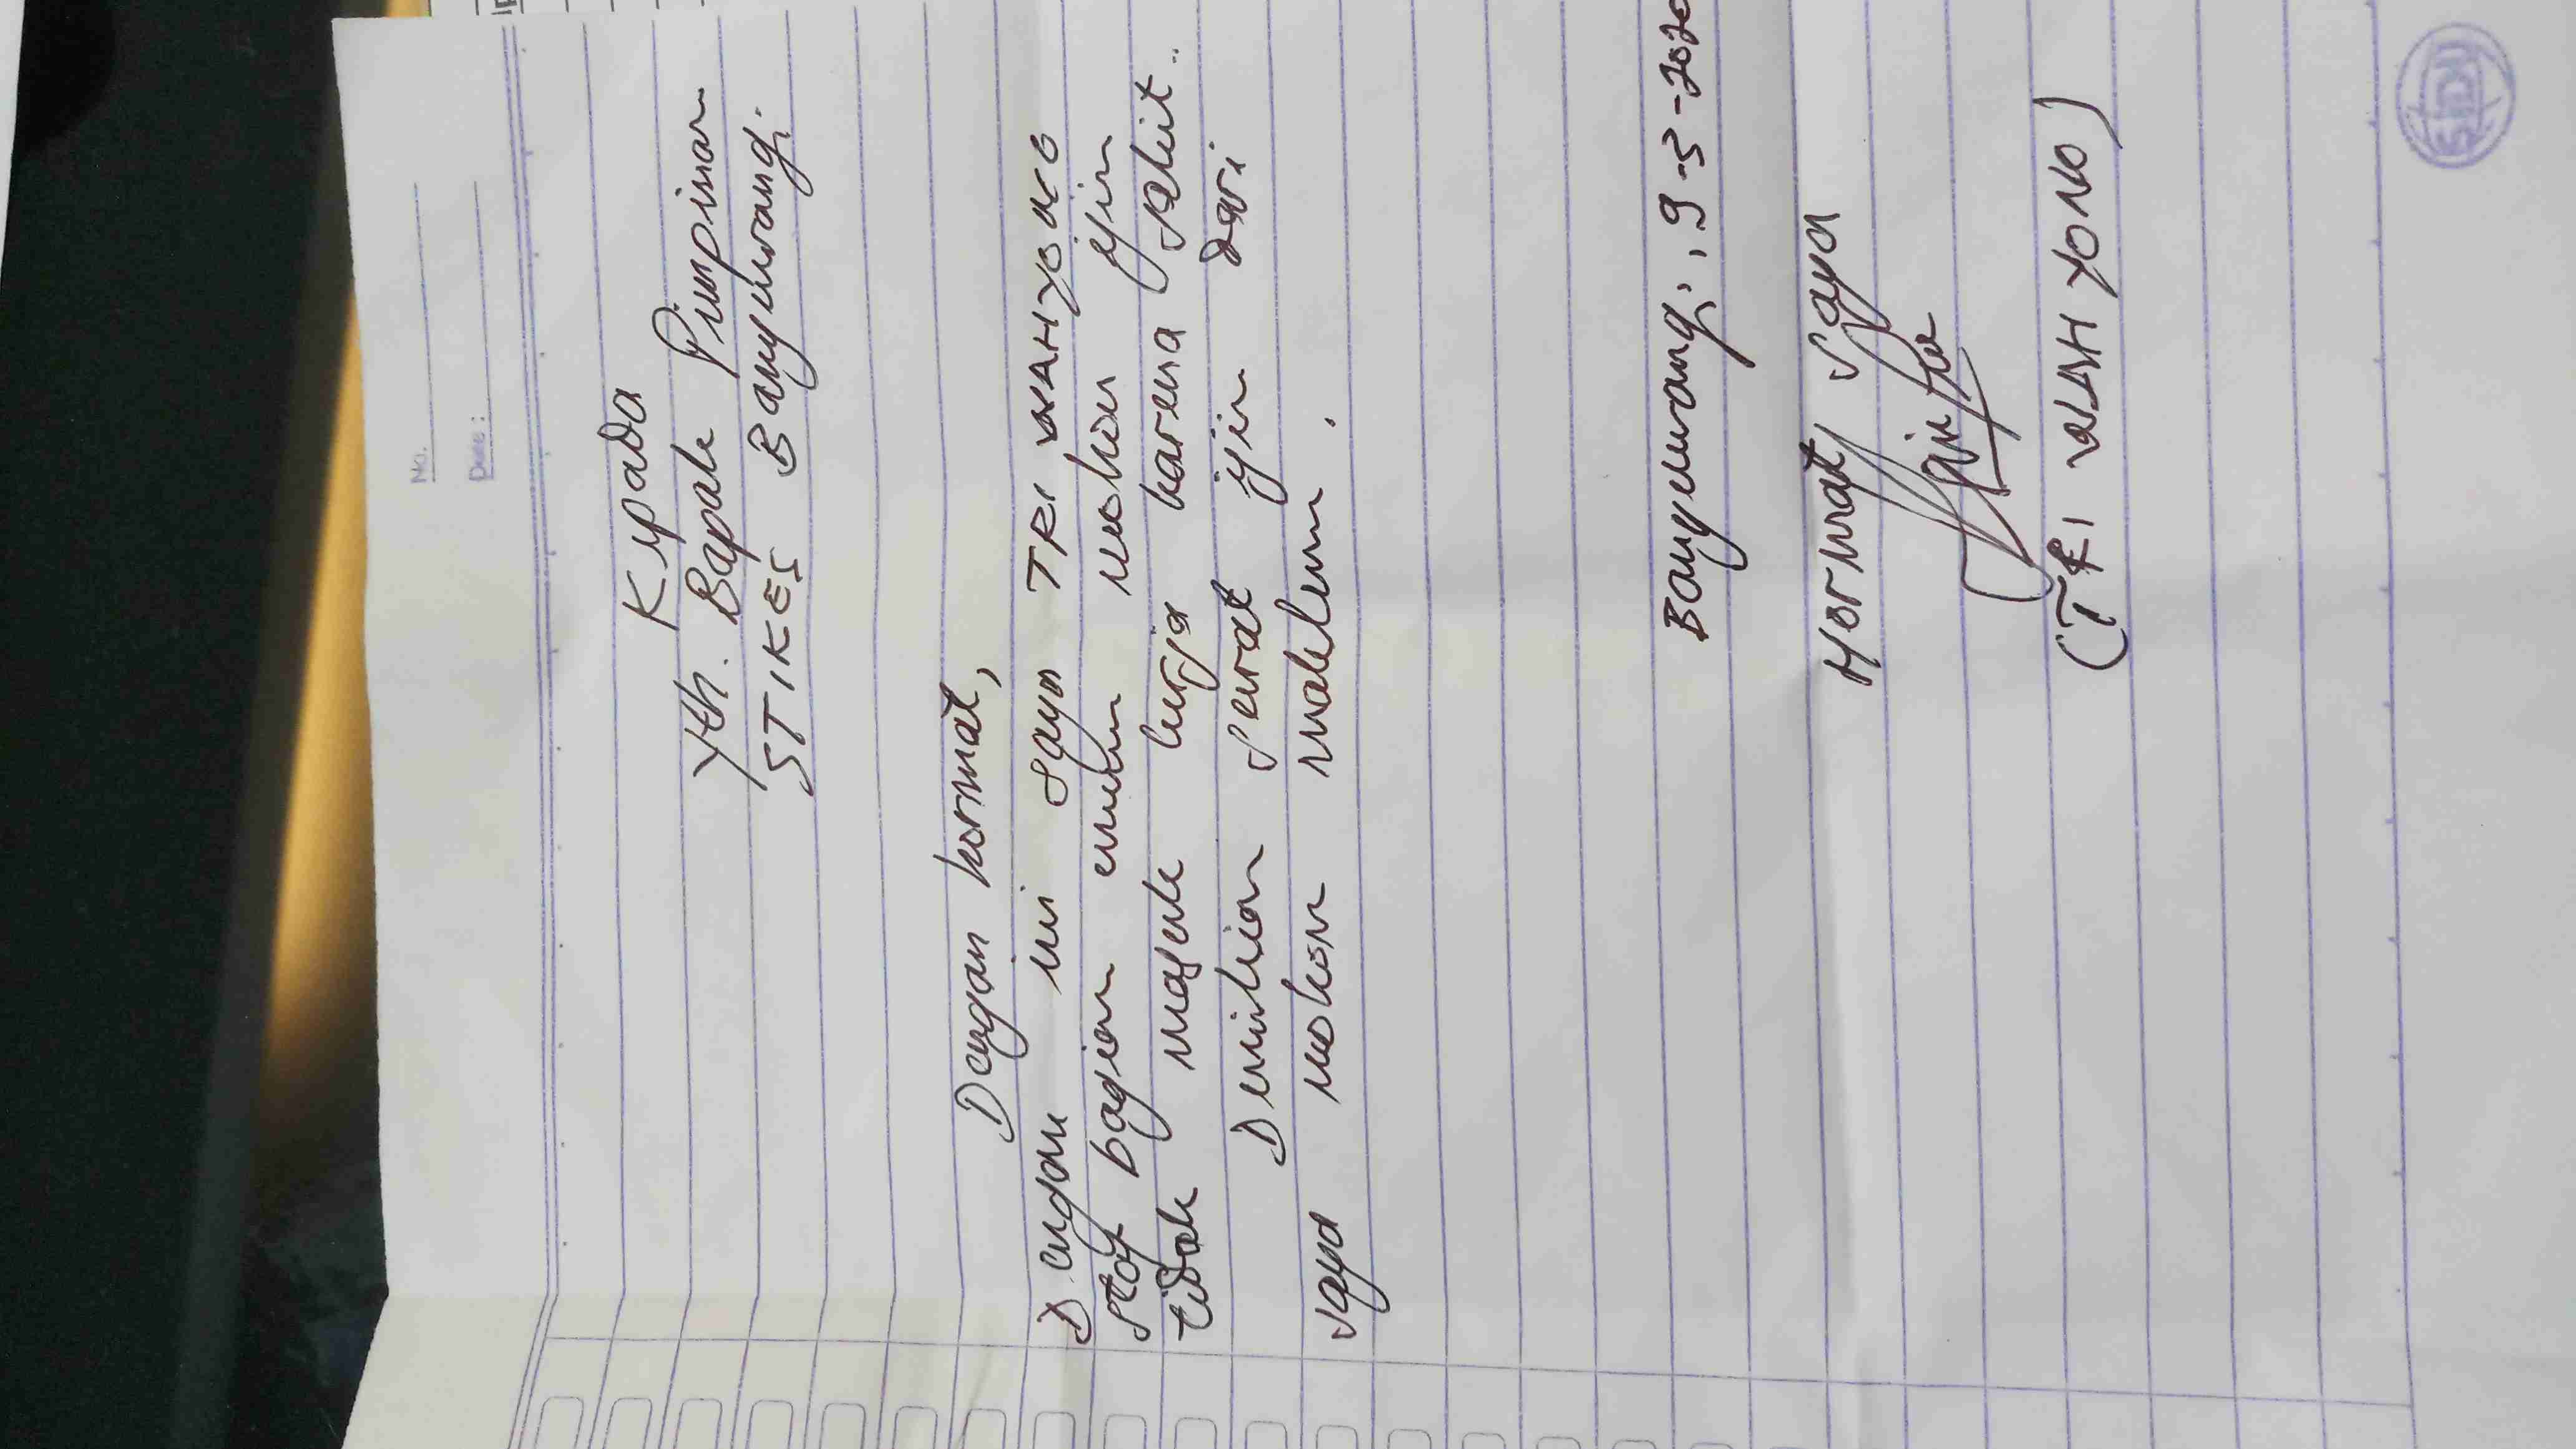 No.
Date :
Kepada
Yth. Bapak Pimpinan
STIKES Banyuwangi
Dengan hormat,
Dengan ini saya TRI WAHYONO
staf bagian umum mohon ijin
tidak masuk kerja karena sakit..
Demikian surat ijin dari
saya mohon maklum.
Banyuwangi, 9-3-2020
Hormat saya
(TRI WAHYONO)
SIDU